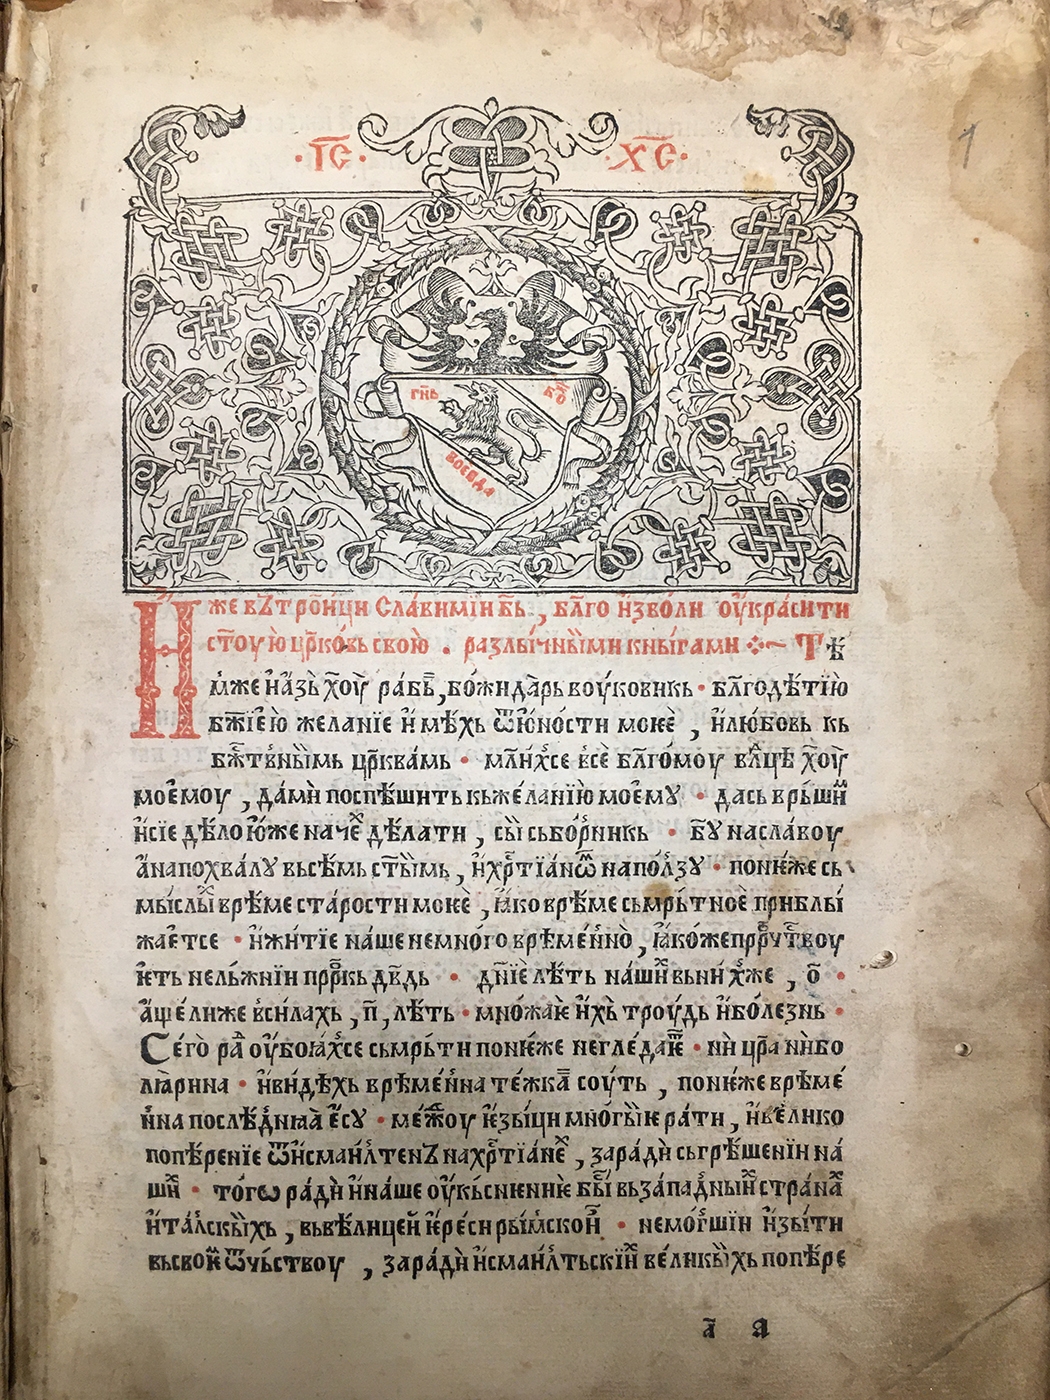 · І҃С · · Х҃С ·
1
гн҃ь
воевда
Иже вꙁ трⷪ҇ици Славимїи б҃ь , бл҃го и҆зво́ли ѹ҆кра́сити
ст҃ѹю̀ цр҃ко́вь свою̀ . разлы́чными кны́гами ⁘~ Тѣ
мже и҆ а҆зъ х҃ѹ ра́бь , бо́жидарь вѹ́ковикь · бл҃годѣ́тїю
бж҃їею̀ желанїе и҆мѣ́хь ѿ ю҆́ности моѥ̀ , и҆ лю́бовь кь
бжⷭ҇твнымь цр҃ква́мь · мл҃ихсе всѐ бл҃го́мѹ влⷣцѣ х҃ѹ
моемѹ , да́ мѝ поспѣ́шить кь жела́нїю моемꙋ · да сьврь́шꙋ
и҆ сїе дѣ́ло ю҆́же наче́хь дѣ́лати , сы̀ сьбо́рникь · бг҃ꙋ на сла́вѹ
а҆ на похва́лꙋ вьсѣ́мь ст҃ымь , и҆ хрⷭ҇тїа́нѡм на по́лзꙋ · понѥ́же сь
мы́слыхь врѣ́ме ста́рости моѥ̀ , ꙗ҆́ко врѣ́ме сьмрь́тноѐ приблы́
жаетсе · и҆ жи́тїе на́ше немно́го врѣме́нно , ꙗ҆ко́же прⷪ҇рчⷭ҇твѹ
ѥть нель́жнїи прⷪ҇рⷪ҇кь дв҃дь · дн҃їе лѣ́ть на́шихь вь ни́хже , о҃ ·
а҆́ще ли же в си́лахь , п҃ , лѣ́ть · мно́жаѥ и҆́хь трѹ́дь и҆ бо́лезнь ·
Сего̀ ради ѹ҆боꙗ́хсе сьмрь́ти понѥ́же не гле́даѥть · нѝ цр҃а нѝ бо
лꙗ́рина · и҆ ви́дѣхь врѣме́нна те́жкаа сѹ́ть , понѥ́же врѣме́
нна послѣ́дняа̀ є҆сꙋ · ме́ждѹ ѥ҆зы́ци мно́гыѥ ра́ти , и҆ вели́ко
попѣ́ренїе ѿ и҆смаи́лтенꙁ на хрⷭ҇тїа́не , за ра́ди сьгрѣ́шенїи на́
шихь · то́го ра́ди и҆ на́ше ѹ҆кь́сненниѥ бы́ вь за́падныихь стра́нахь
и҆та́лскыхь , вь вѣ́лицей ѥ҆́реси ры́мской · не мо́гшїи и҆зы́ти
вь своѥ ѿчь́ствѹ , за ра́ди и҆сма́илтьскїихь ве́ликыхь попѣ́ре
а҃ я